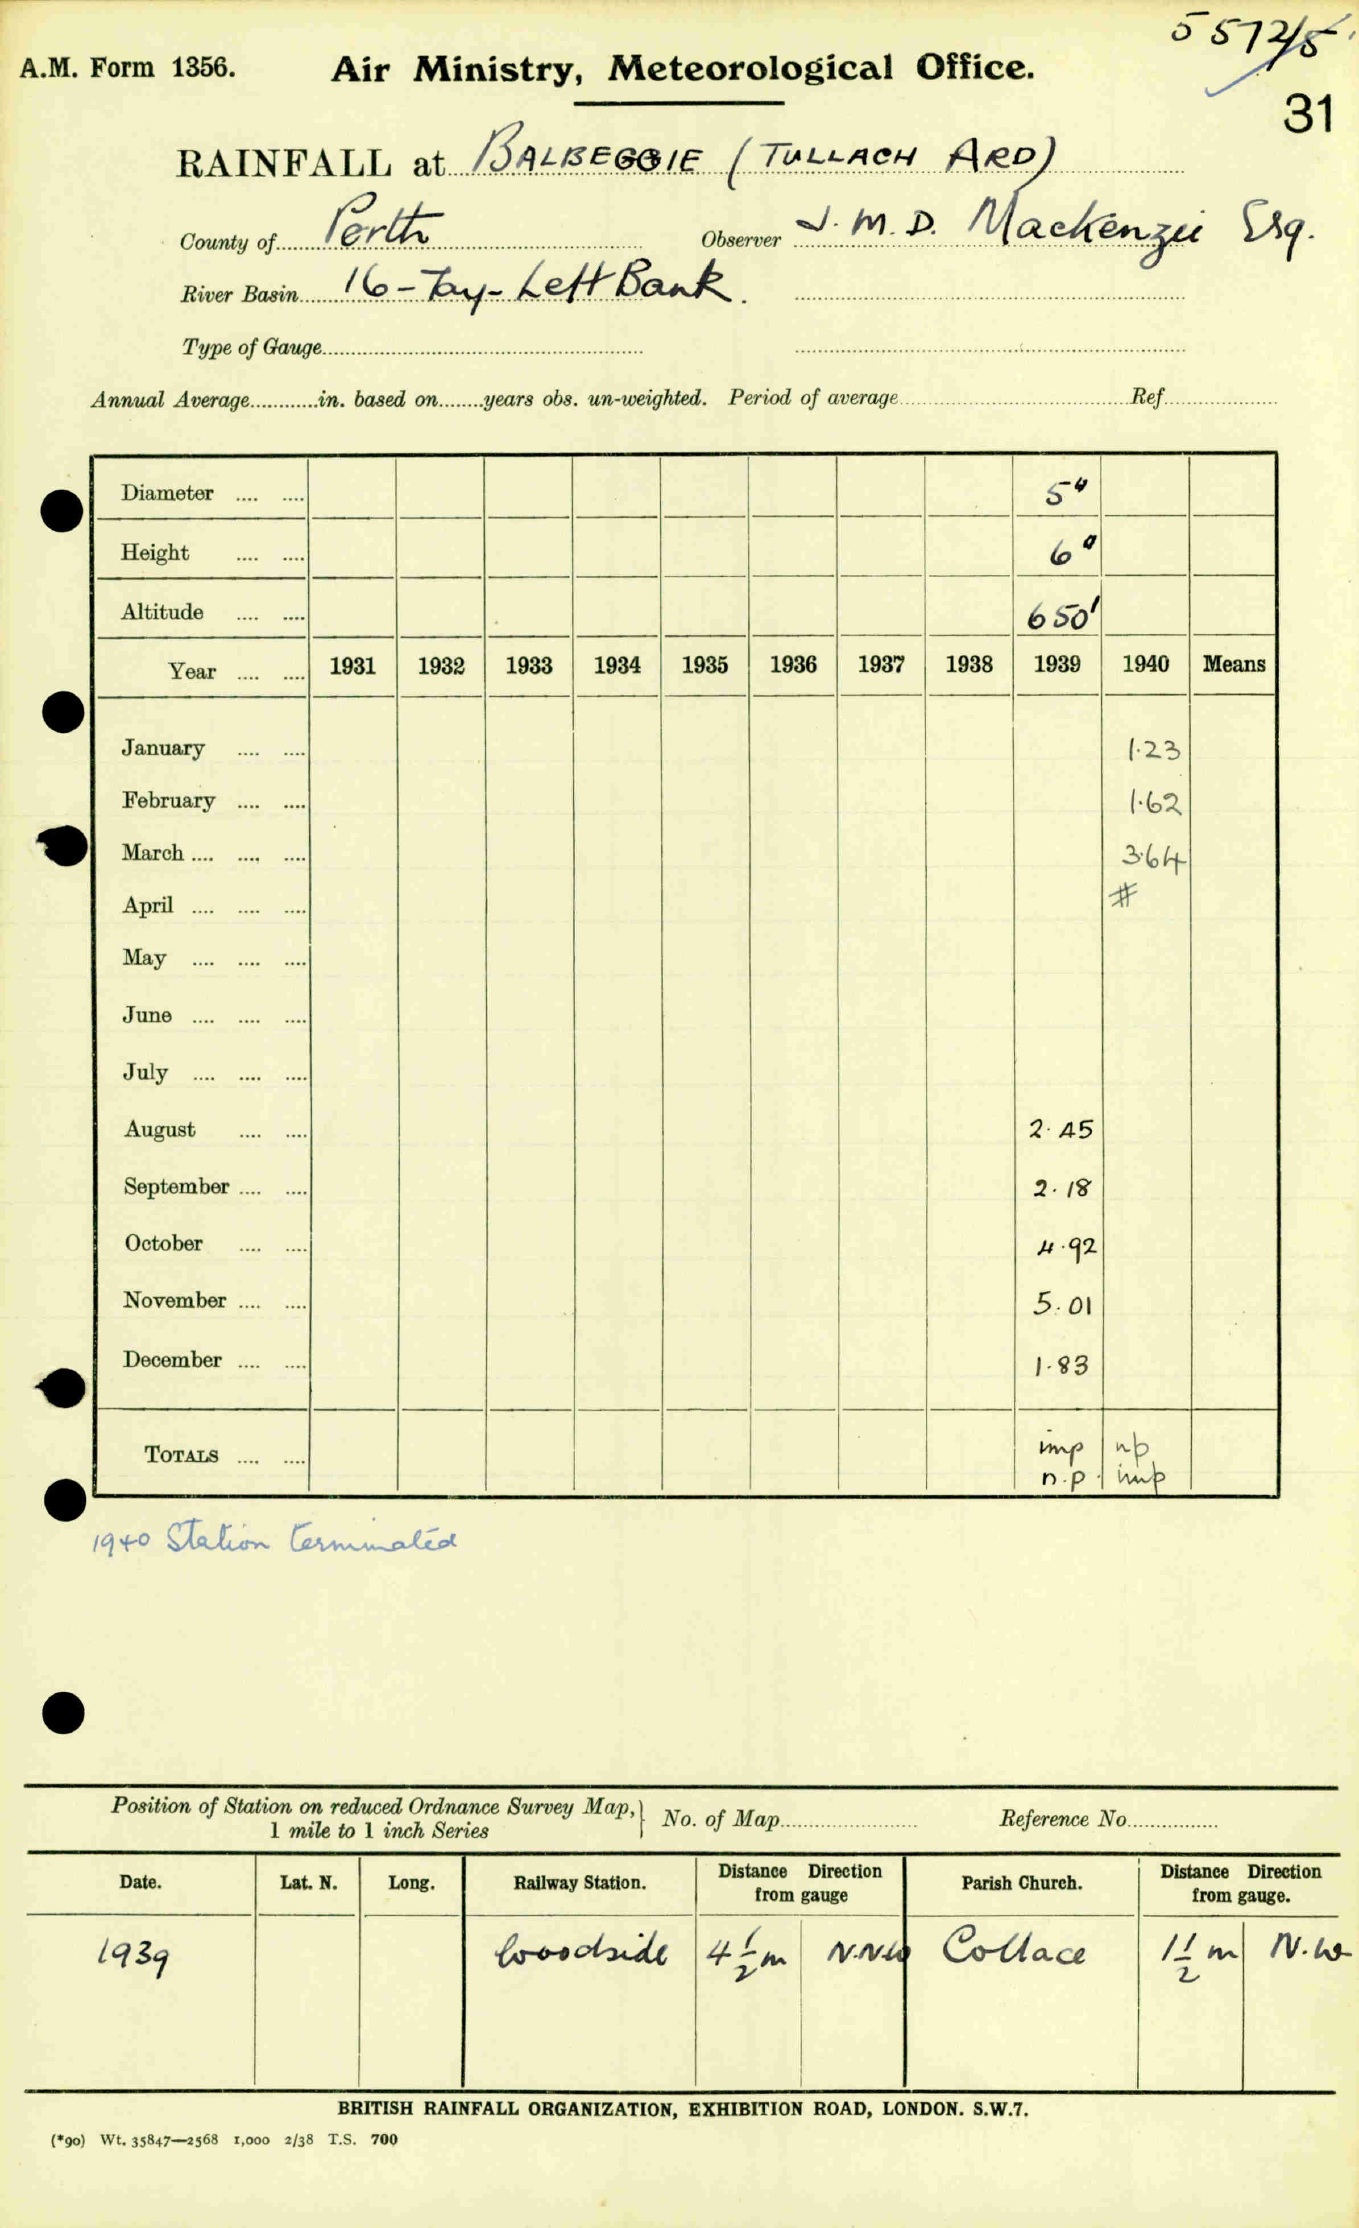 5572/5
A.M. Form 1356. Air Ministry, Meteorological Office.
31
RAINFALL at BALBEGGIE (TULLACH ARD)
County of Perth Observer J. M. D. Mackenzie Esq.
River Basin 16 - Tay - Left Bank.
Type of Gauge
Annual Average in. based on years obs. un-weighted. Period of average Ref.
Diameter 5"
Height 6"
Altitude 650'
Year 1931 1932 1933 1934 1935 1936 1937 1938 1939 1940 Means
January 1.23
February 1.62
March 3.64
April #
May
June
July
August 2.45
September 2.18
October 4.92
November 5.01
December 1.83
TOTALS imp np
n.p. imp
1940 Station terminated
Position of Station on reduced Ordnance Survey Map,} No. of Map Reference No.
1 mile to 1 inch Series
Date. Lat. N. Long. Railway Station. Distance Direction from gauge Parish Church. Distance Direction from gauge.
1939 Woodside 4 1/2 m N.N.W Collace 1 1/2 m N.W
BRITISH RAINFALL ORGANIZATION, EXHIBITION ROAD, LONDON. S.W.7.
(*90) Wt. 35847—2568 1,000 2/38 T.S. 700